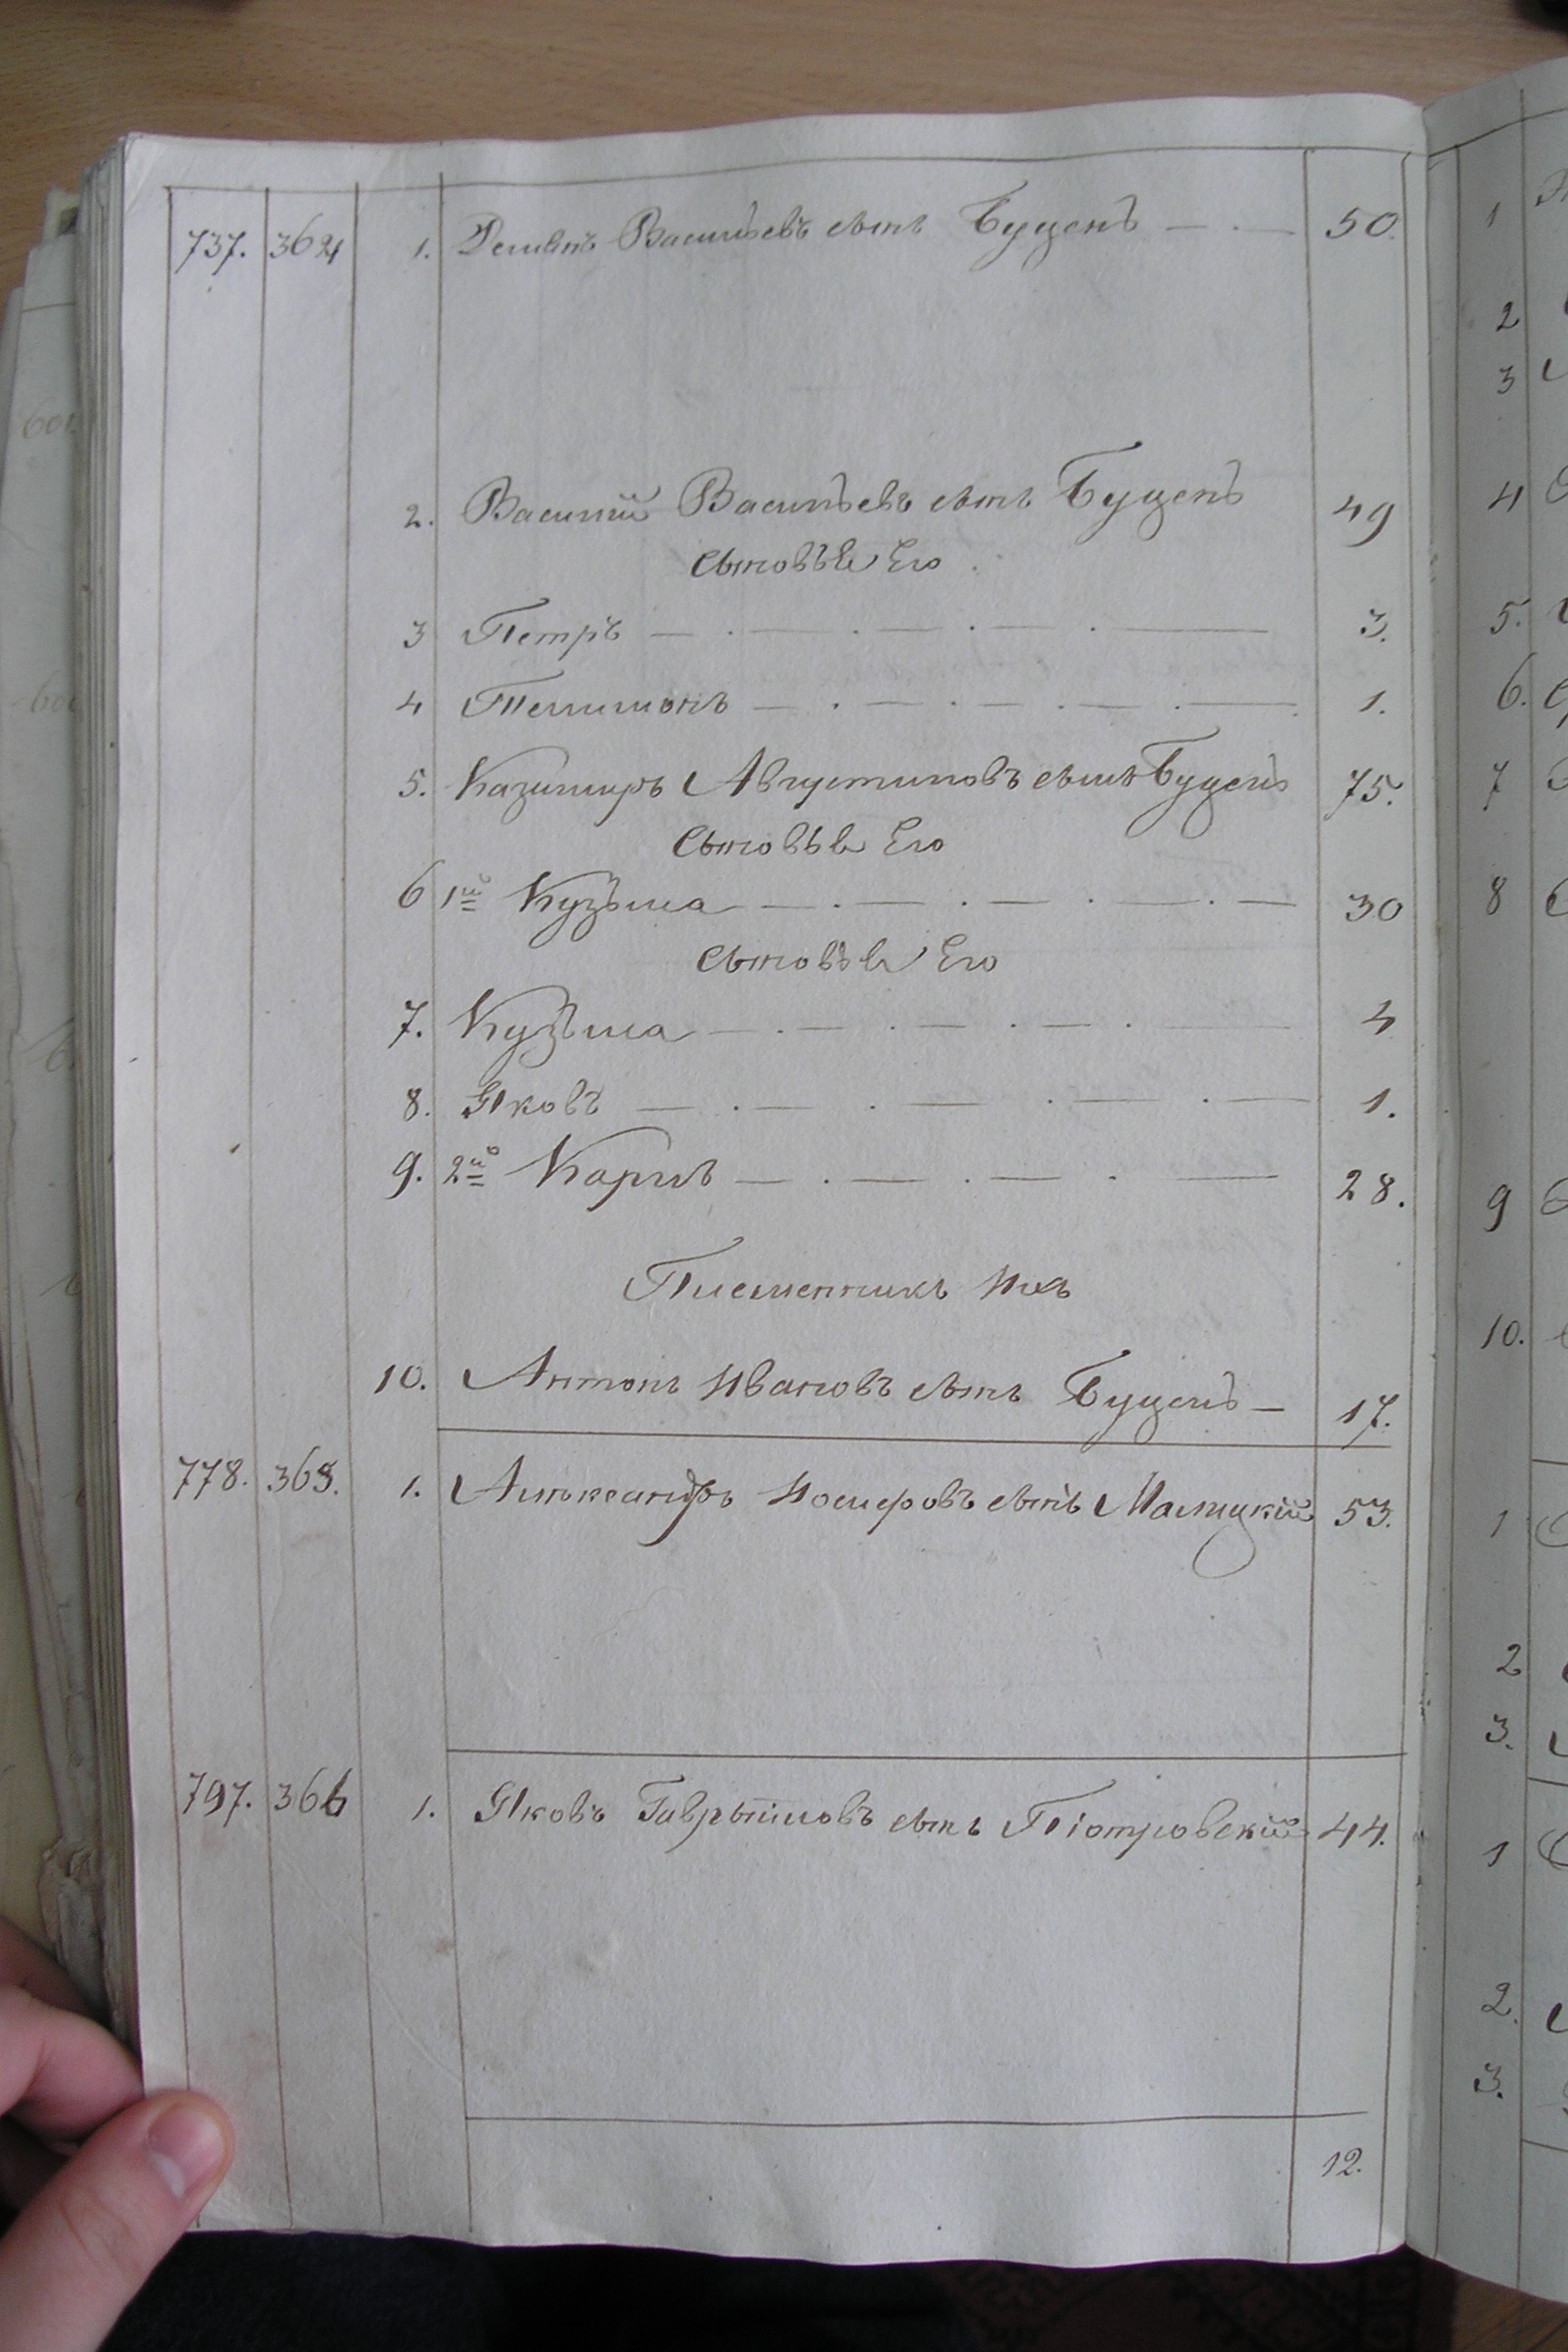 737. 364 1. Демьянъ Васильевъ сынъ Буценъ 50.
2. Василий Васильевъ сынъ Буценъ 49
Сыновья Его
3 Петръ 3.
4 Пилимонъ 1.
5. Казимиръ Августиновъ сынъ Буценъ 75.
Сыновья Его
6 1й Кузьма 30
Сыновья Его
7. Кузьма 4
8. Яковъ 1.
9. 2й Карпъ 28.
Племенникъ Ихъ
10. Антонъ Ивановъ сынъ Буценъ 17.
778. 365. 1. Александръ Иосифовъ сынъ 53.
797. 366 1. Яковъ Гаврыиловъ сынъ Піотровскій 44.
12.
1
2
3
4
5.
6.
7
8
9
10.
1
2
3.
1
2.
3.